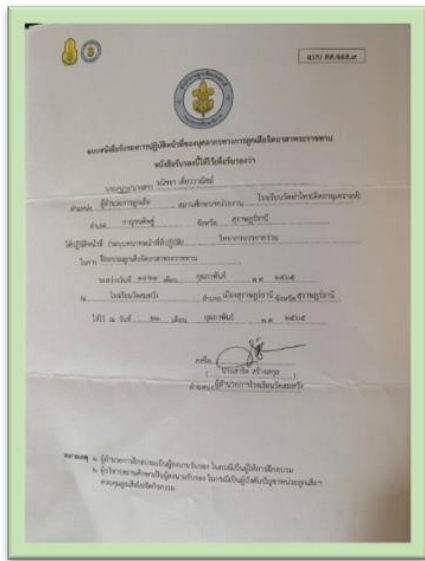 แบบ ลส.
แบบหนังสือรับรองการปฏิบัติหน้าที่ของบุคลากรทางการลูกเสือจิตอาสาพระราชทาน
หนังสือรับรองนี้ให้ไว้เพื่อรับรองว่า
นาย/นาง/นางสาว วณิชยา เตี่ยววาณิชย์
ตำแหน่ง ผู้อำนวยการลูกเสือ สถานศึกษา/หน่วยงาน
อำเภอ กาญจนดิษฐ์ จังหวัด สุราษฎร์ธานี
ได้ปฏิบัติหน้าที่ (ระบุบทบาทหน้าที่ที่ปฏิบัติ) วิทยากรบรรยายร่วม
ในการ ฝึกอบรมลูกเสือจิตอาสาพระราชทาน
ระหว่างวันที่ เดือน กุมภาพันธ์ พ.ศ. ๒๕๖๕
ณ โรงเรียนวัดสมหวัง อำเภอ เมืองสุราษฎร์ธานี จังหวัด สุราษฎร์ธานี
ให้ไว้ ณ วันที่ ๒๒ เดือน กุมภาพันธ์ พ.ศ. ๒๕๖๕
ลงชื่อ
ตำแหน่ง ผู้อำนวยการโรงเรียนวัดสมหวัง
หมายเหตุ ๑. ผู้อำนวยการฝึกอบรมเป็นผู้ลงนามรับรอง ในกรณีเป็นผู้ให้การฝึกอบรม
๒. ผู้บริหารสถานศึกษาเป็นผู้ลงนามรับรอง ในกรณีเป็นผู้บังคับบัญชาหน่วยลูกเสือฯ
ควบคุมลูกเสือไปจัดกิจกรรม